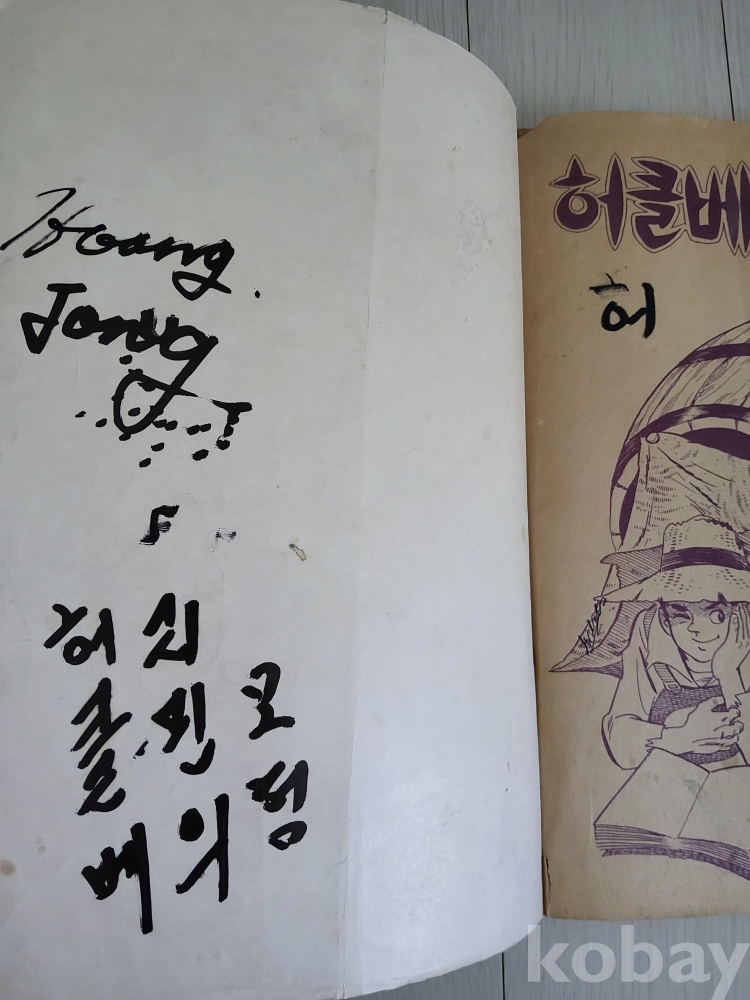 Hoang.
Jong
허클베
리핀의
모험
허클베
허
kobay